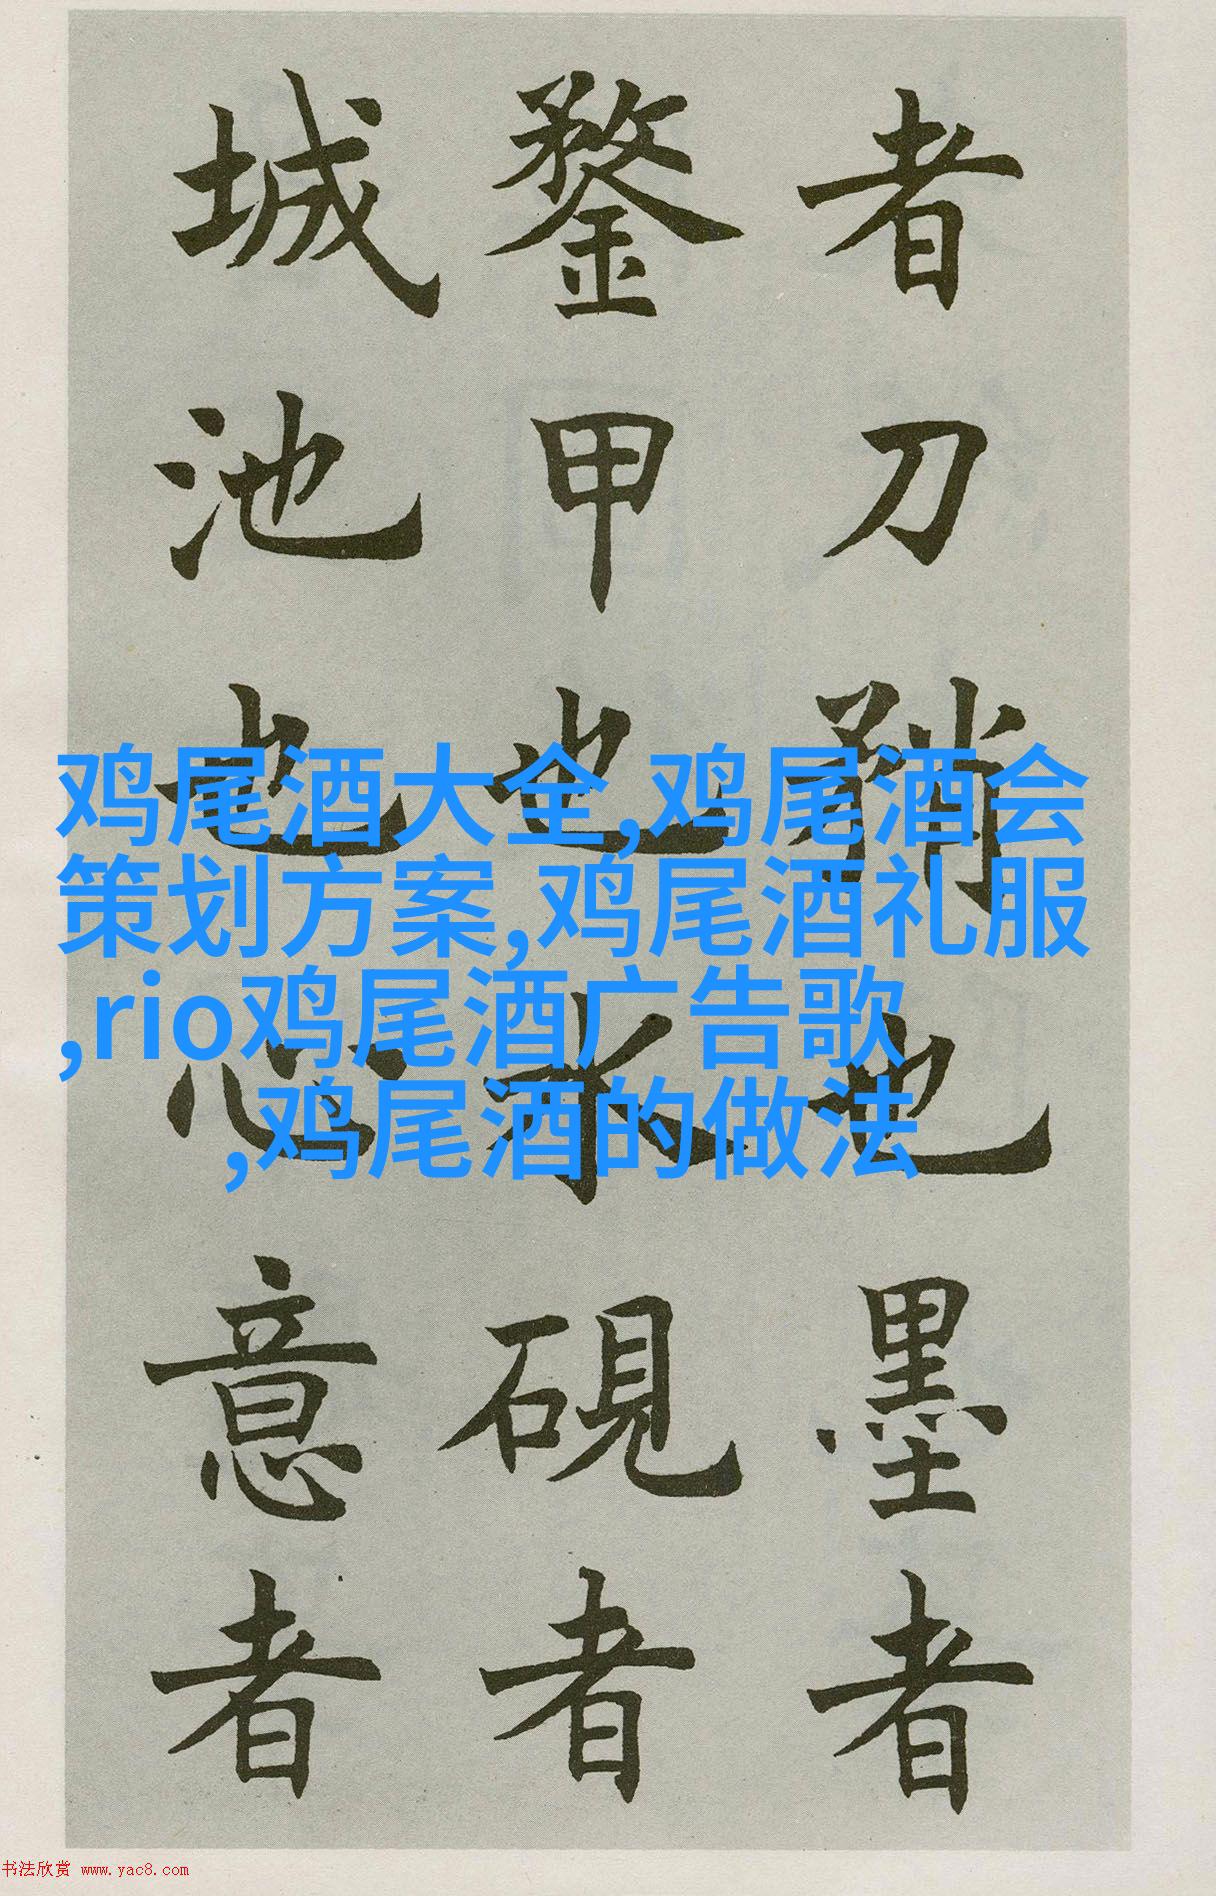 者刀矟也墨者
鍪甲也水硯者
城池也心意者
鸡尾酒大全,鸡尾酒会
策划方案,鸡尾酒礼服
,rio鸡尾酒广告歌
,鸡尾酒的做法
书法欣赏 www.yac8.com